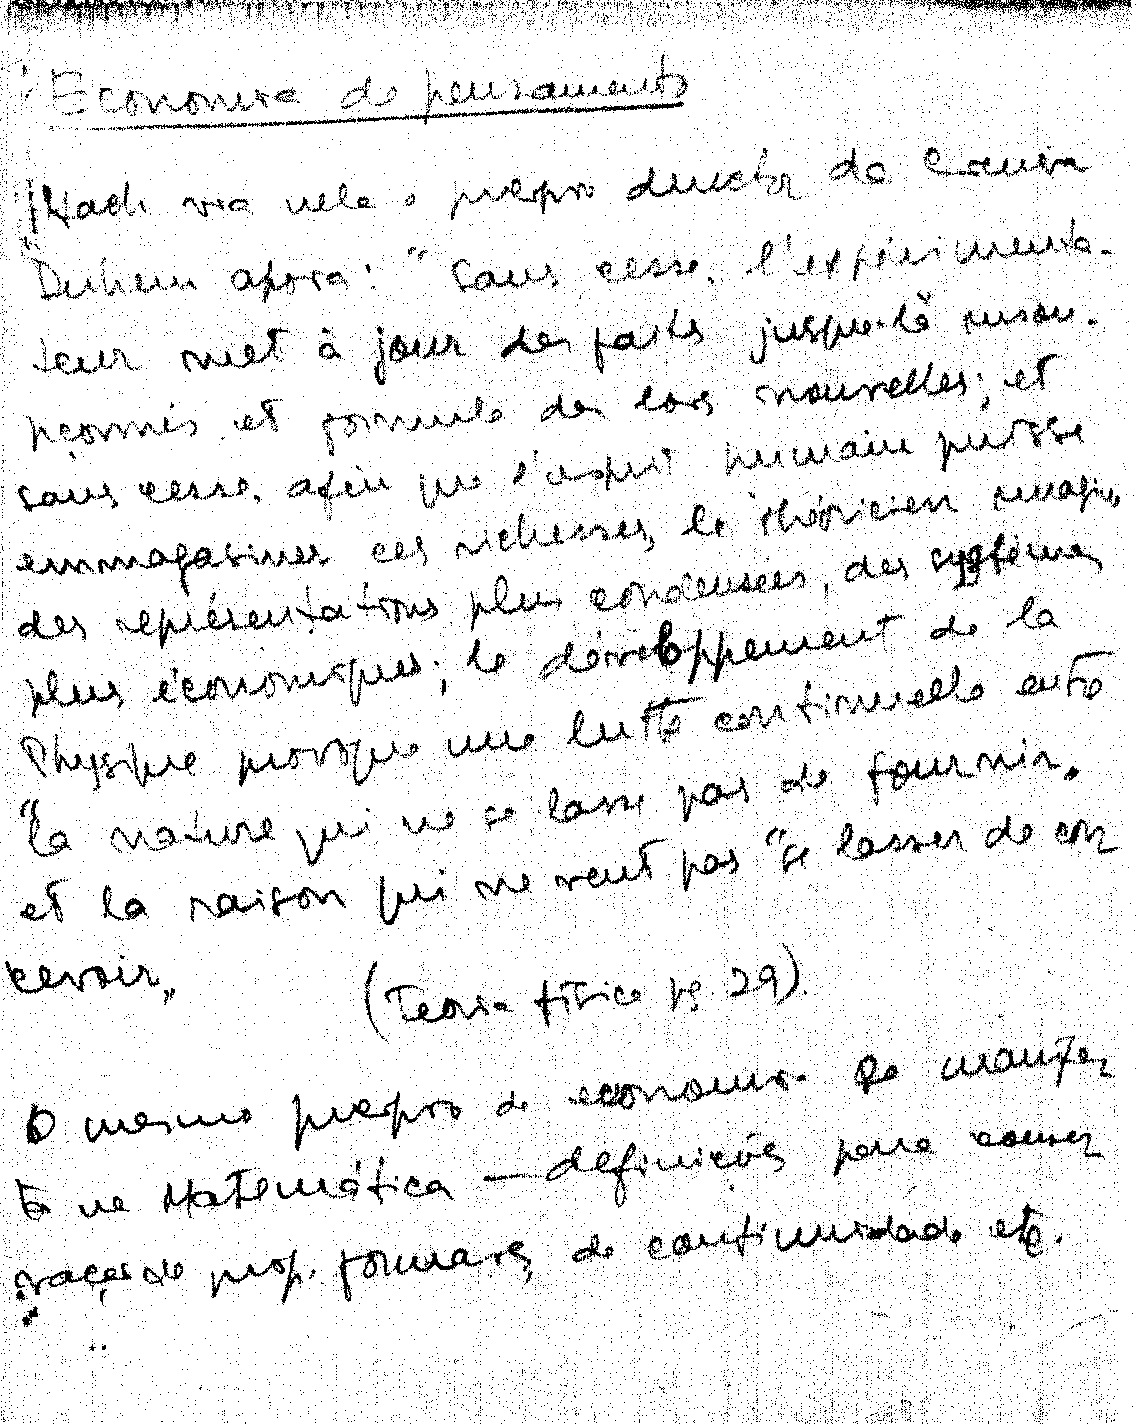 Economia do pensamento
Mach via nela o princípio director da Ciência
Duhem apoia: "Sans cesse, l'expérimenta-
teur met à jour des faits jusque-là insou-
pçonnés et formule des lois nouvelles; et
sans cesse, afin que l'esprit humain puisse
emmagasiner ces richesses, le théoricien imagine
des représentations plus condensées, des systèmes
plus économiques; le développement de la
Physique provoque une lutte continuelle entre
"la nature qui ne se lasse pas de fournir"
et la raison qui ne veut pas "se lasser de con
cevoir"
(Teoria física pg 29)
O mesmo princípio de economia se manifes
ta na Matemática — definições para conser
vação de prop. formais, de continuidade etc.